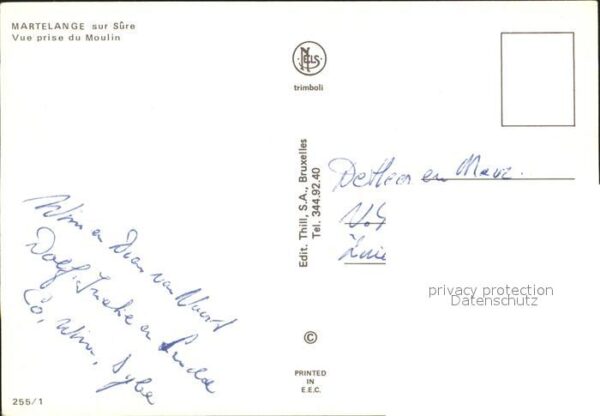 MARTELANGE sur Sûre
Vue prise du Moulin
NELS
trimboli
Edit. Thill, S.A., Bruxelles
Tel. 344.92.40
De Heer en Mevr.
privacy protection
Datenschutz
Wim en Dian van Noort
Dolf, Ineke en Linda
Co, Wim, Sylva
©
PRINTED
IN
E.E.C.
255/1